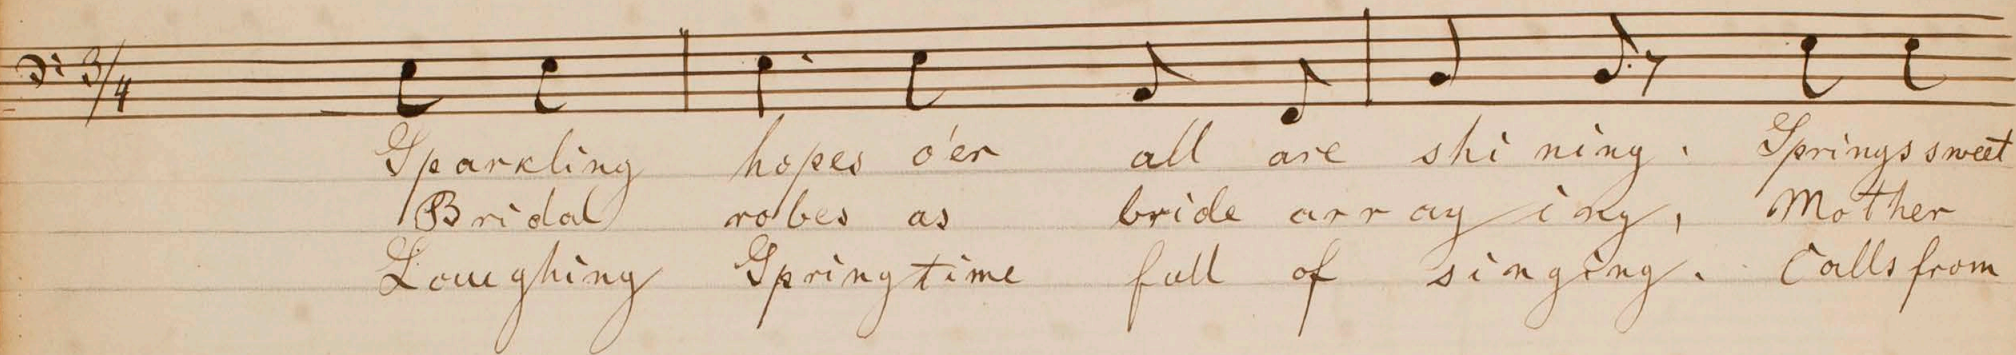 3/4
Sparkling hopes o'er all are shi ning. Springs sweet
Bridal robes as bride arr ay ing, Mother
Laughing Spring time full of singing. Calls from